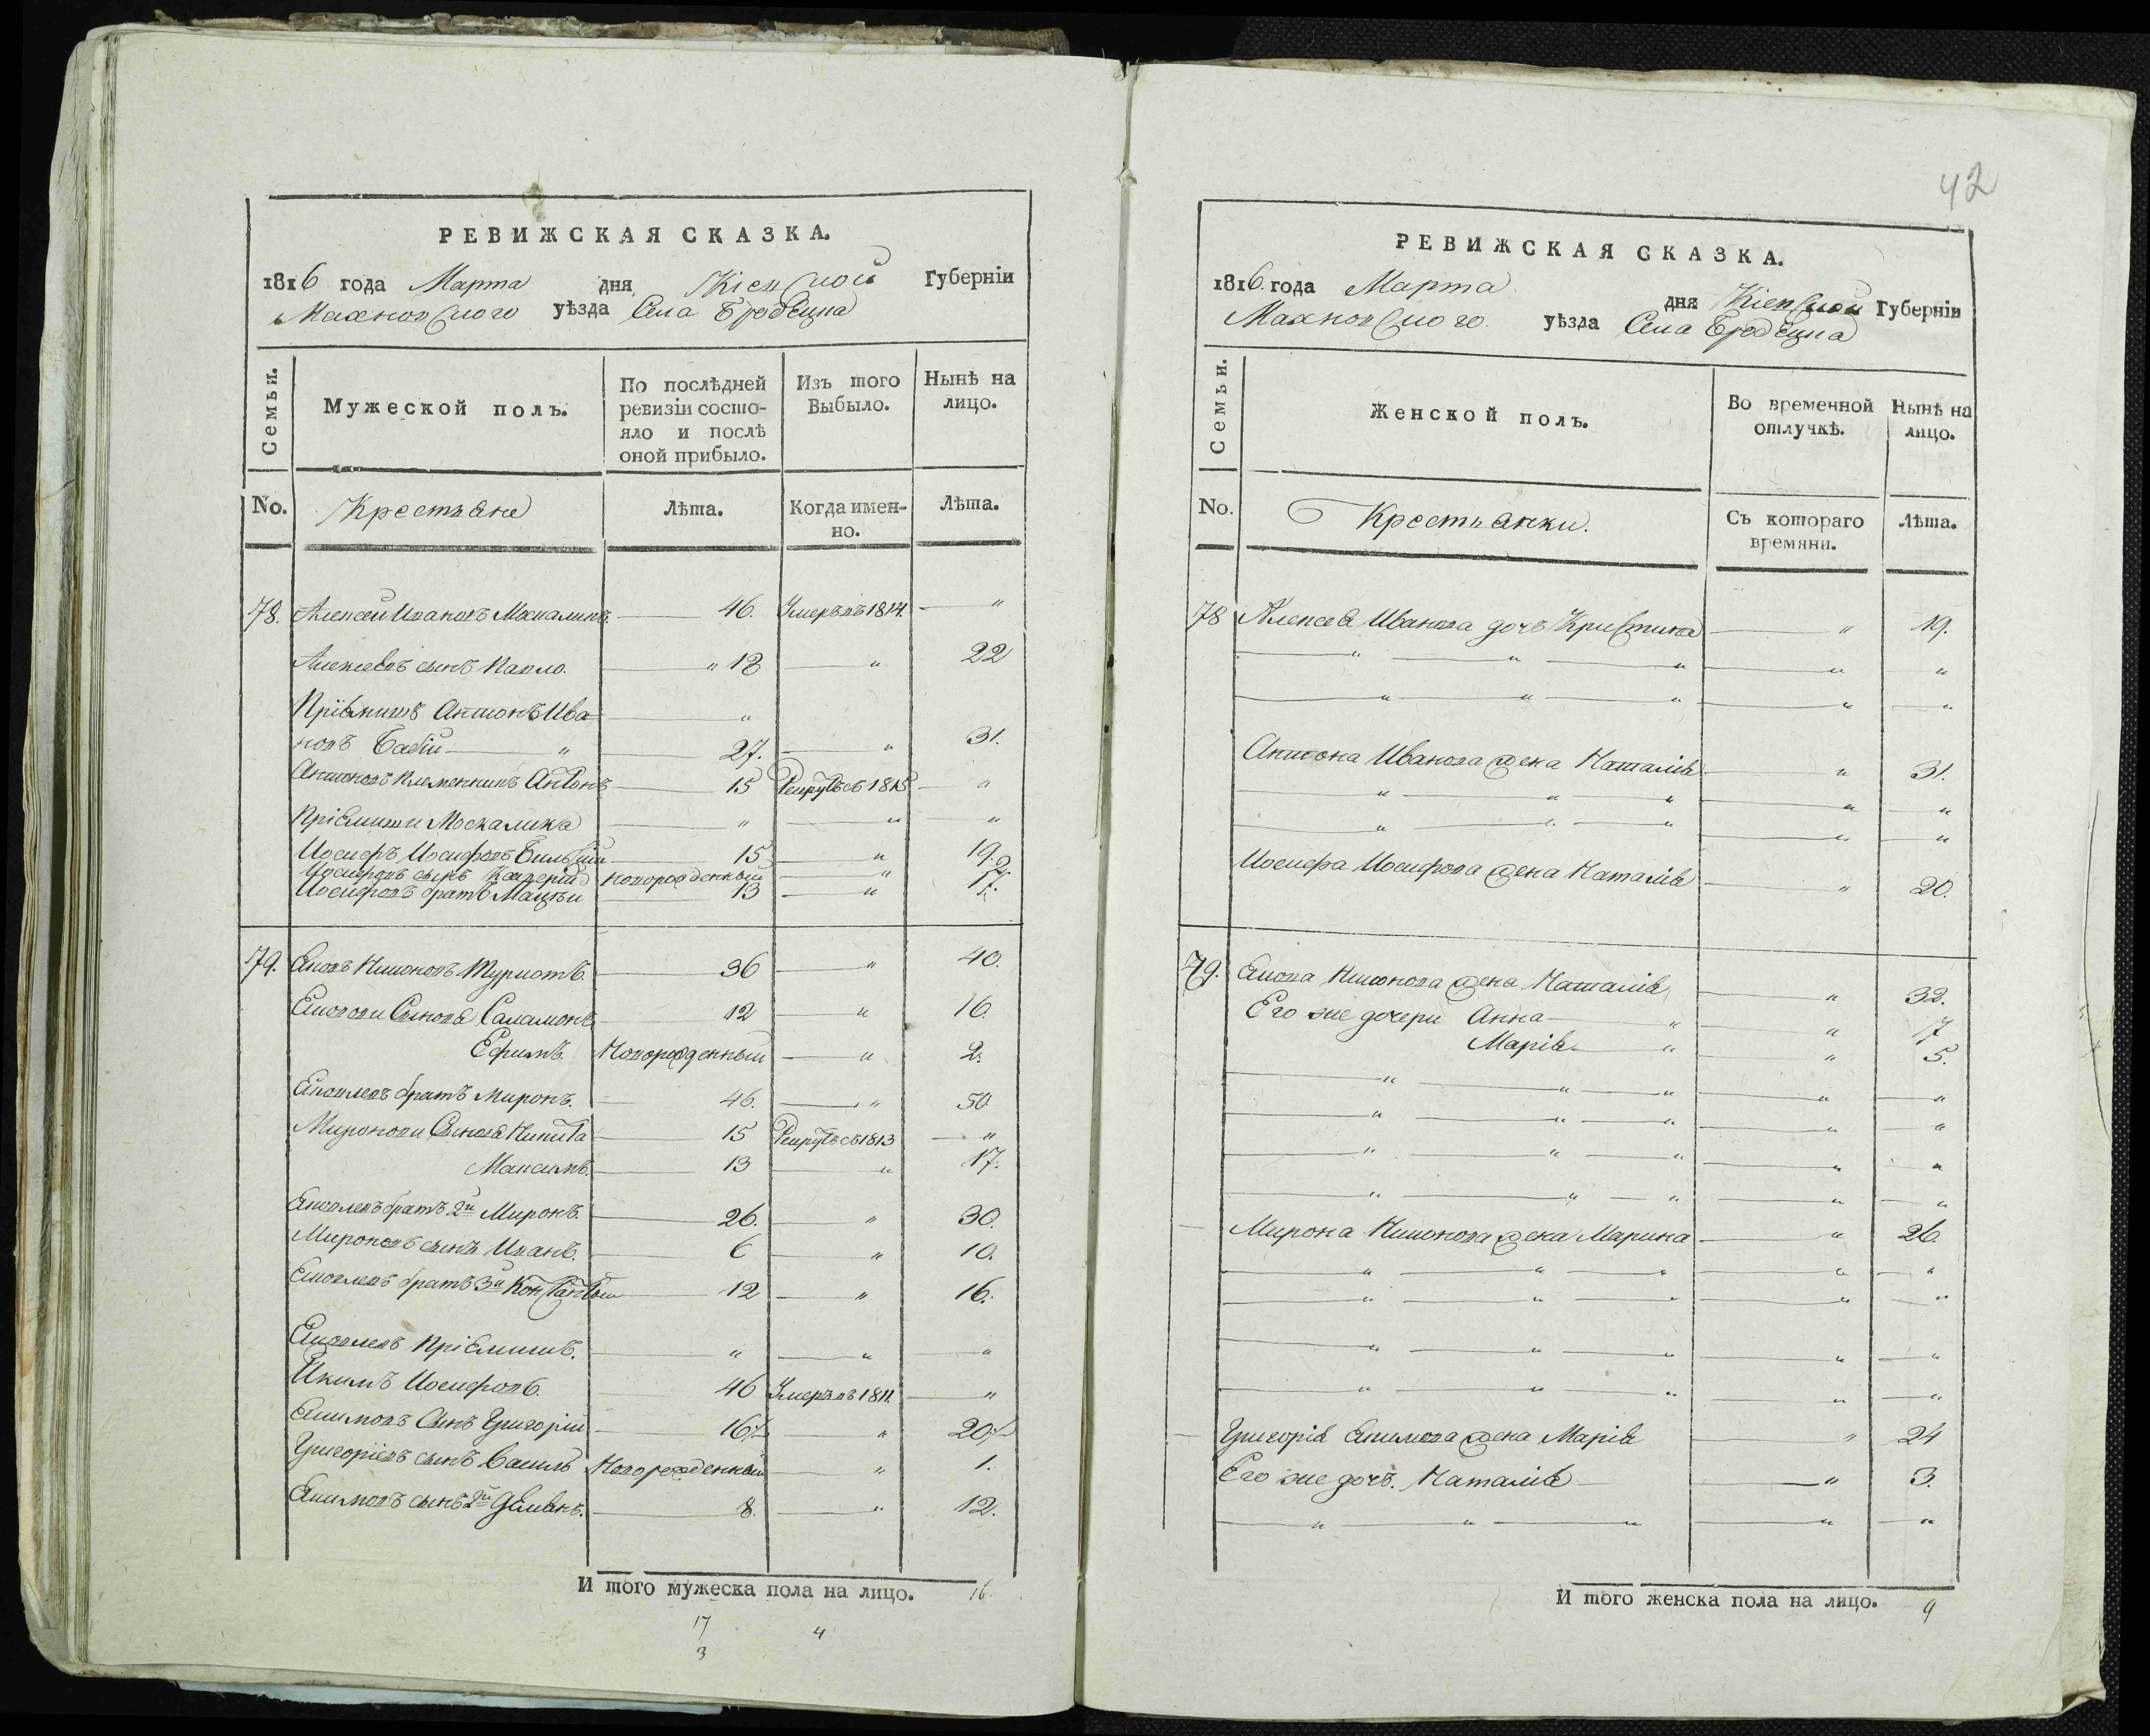 РЕВИЖСКАЯ СКАЗКА.
1816 года Марта дня Кіевской Губерніи
Махновского уѣзда Села Бродецка
Семьи.
Мужеской полъ.
По послѣдней ревизіи состо-
яло и послѣ
оной прибыло.
Изъ того
Выбыло.
Нынѣ на
лицо.
No. Крестьяне Лѣта. Когда имен-
но. Лѣта.
78. Алексей Ивановъ Москаликъ 46. Умеръ въ 1814. "
Алексеевъ сынъ Павло. " 18 " 22
Пріймишъ Антонъ Ива- "
новъ Бабій " 27. " 31.
Антоновъ племенникъ Антонъ 15 Рекрутъ съ 1815 "
Пріемиши Москалика " " "
Иосифъ Иосифовъ 15 " 19.
Иосифовъ сынъ новорожденный "
Иосифовъ братъ 13 " 17.
79. 36 " 40.
Сыновья Саламонъ 12 " 16.
Ефимъ. Новорожденный " 2.
Яковлевъ братъ Миронъ. 46. " 50
Миронови Сыновья Никита 15 Рекрутъ съ 1813 "
Максимъ. 13 " 17.
Яковлевъ братъ 2й Миронъ. 26. " 30.
Мироновъ сынъ Иванъ. 6 " 10.
Яковлевъ братъ 3й 12 " 16.
Яковлевъ Пріемишъ. " " "
Якимъ Иосифовъ. 46 Умеръ въ 1811. "
Якимовъ Сынъ Григорій 16 " 20
Григоріевъ сынъ Василь Новорожденный " 1.
Якимовъ сынъ 2й Демянъ. 8. " 12.
И того мужеска пола на лицо. 16.
17 4
3
42
РЕВИЖСКАЯ СКАЗКА.
1816. года Марта дня Кіевской Губерніи
Махновского. уѣзда Села Бродецка
Семьи.
Женской полъ.
Во временной
отлучкѣ.
Нынѣ на
лицо.
No. Крестьянки. Съ котораго
времяни. Лѣта.
78 Алексея Иванова дочъ Кристина " 19.
" " " " "
" " " " "
Антона Иванова жена Наталія " 31.
" " " " "
" " " " "
Иосифа Иосифова жена Наталія " 20.
79. Якова жена Наталія " 32.
Его же дочери Анна " " 7
Марія " " 5.
" " " " "
" " " " "
" " " " "
" " " " "
Мирона жена Марина " 26.
" " " " "
" " " " "
" " " " "
" " " " "
Григорія Якимова жена Марія " 24
Его же дочъ. Наталія " 3.
" " " " "
И того женска пола на лицо. 9